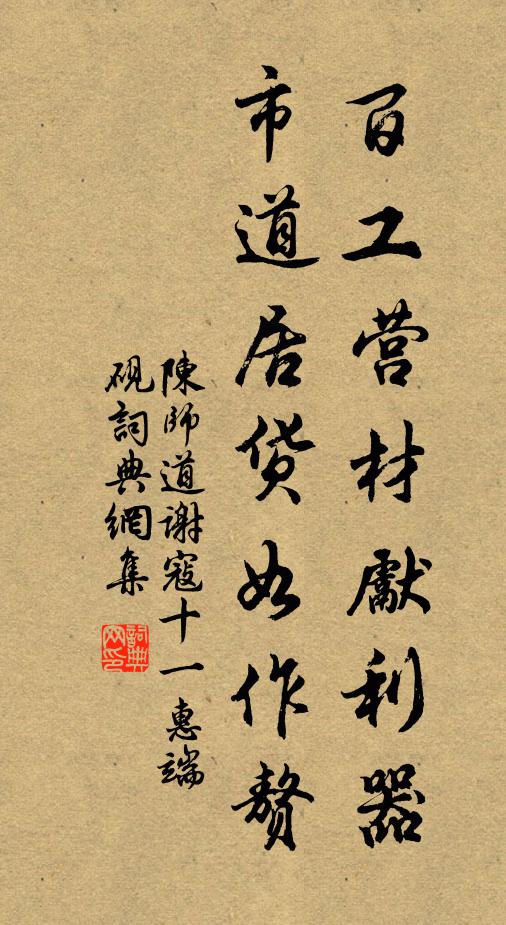 百工营材獻利器
市道居货如作赘
陳師道謝寇十一惠端
砚詞典網集
詞典网印